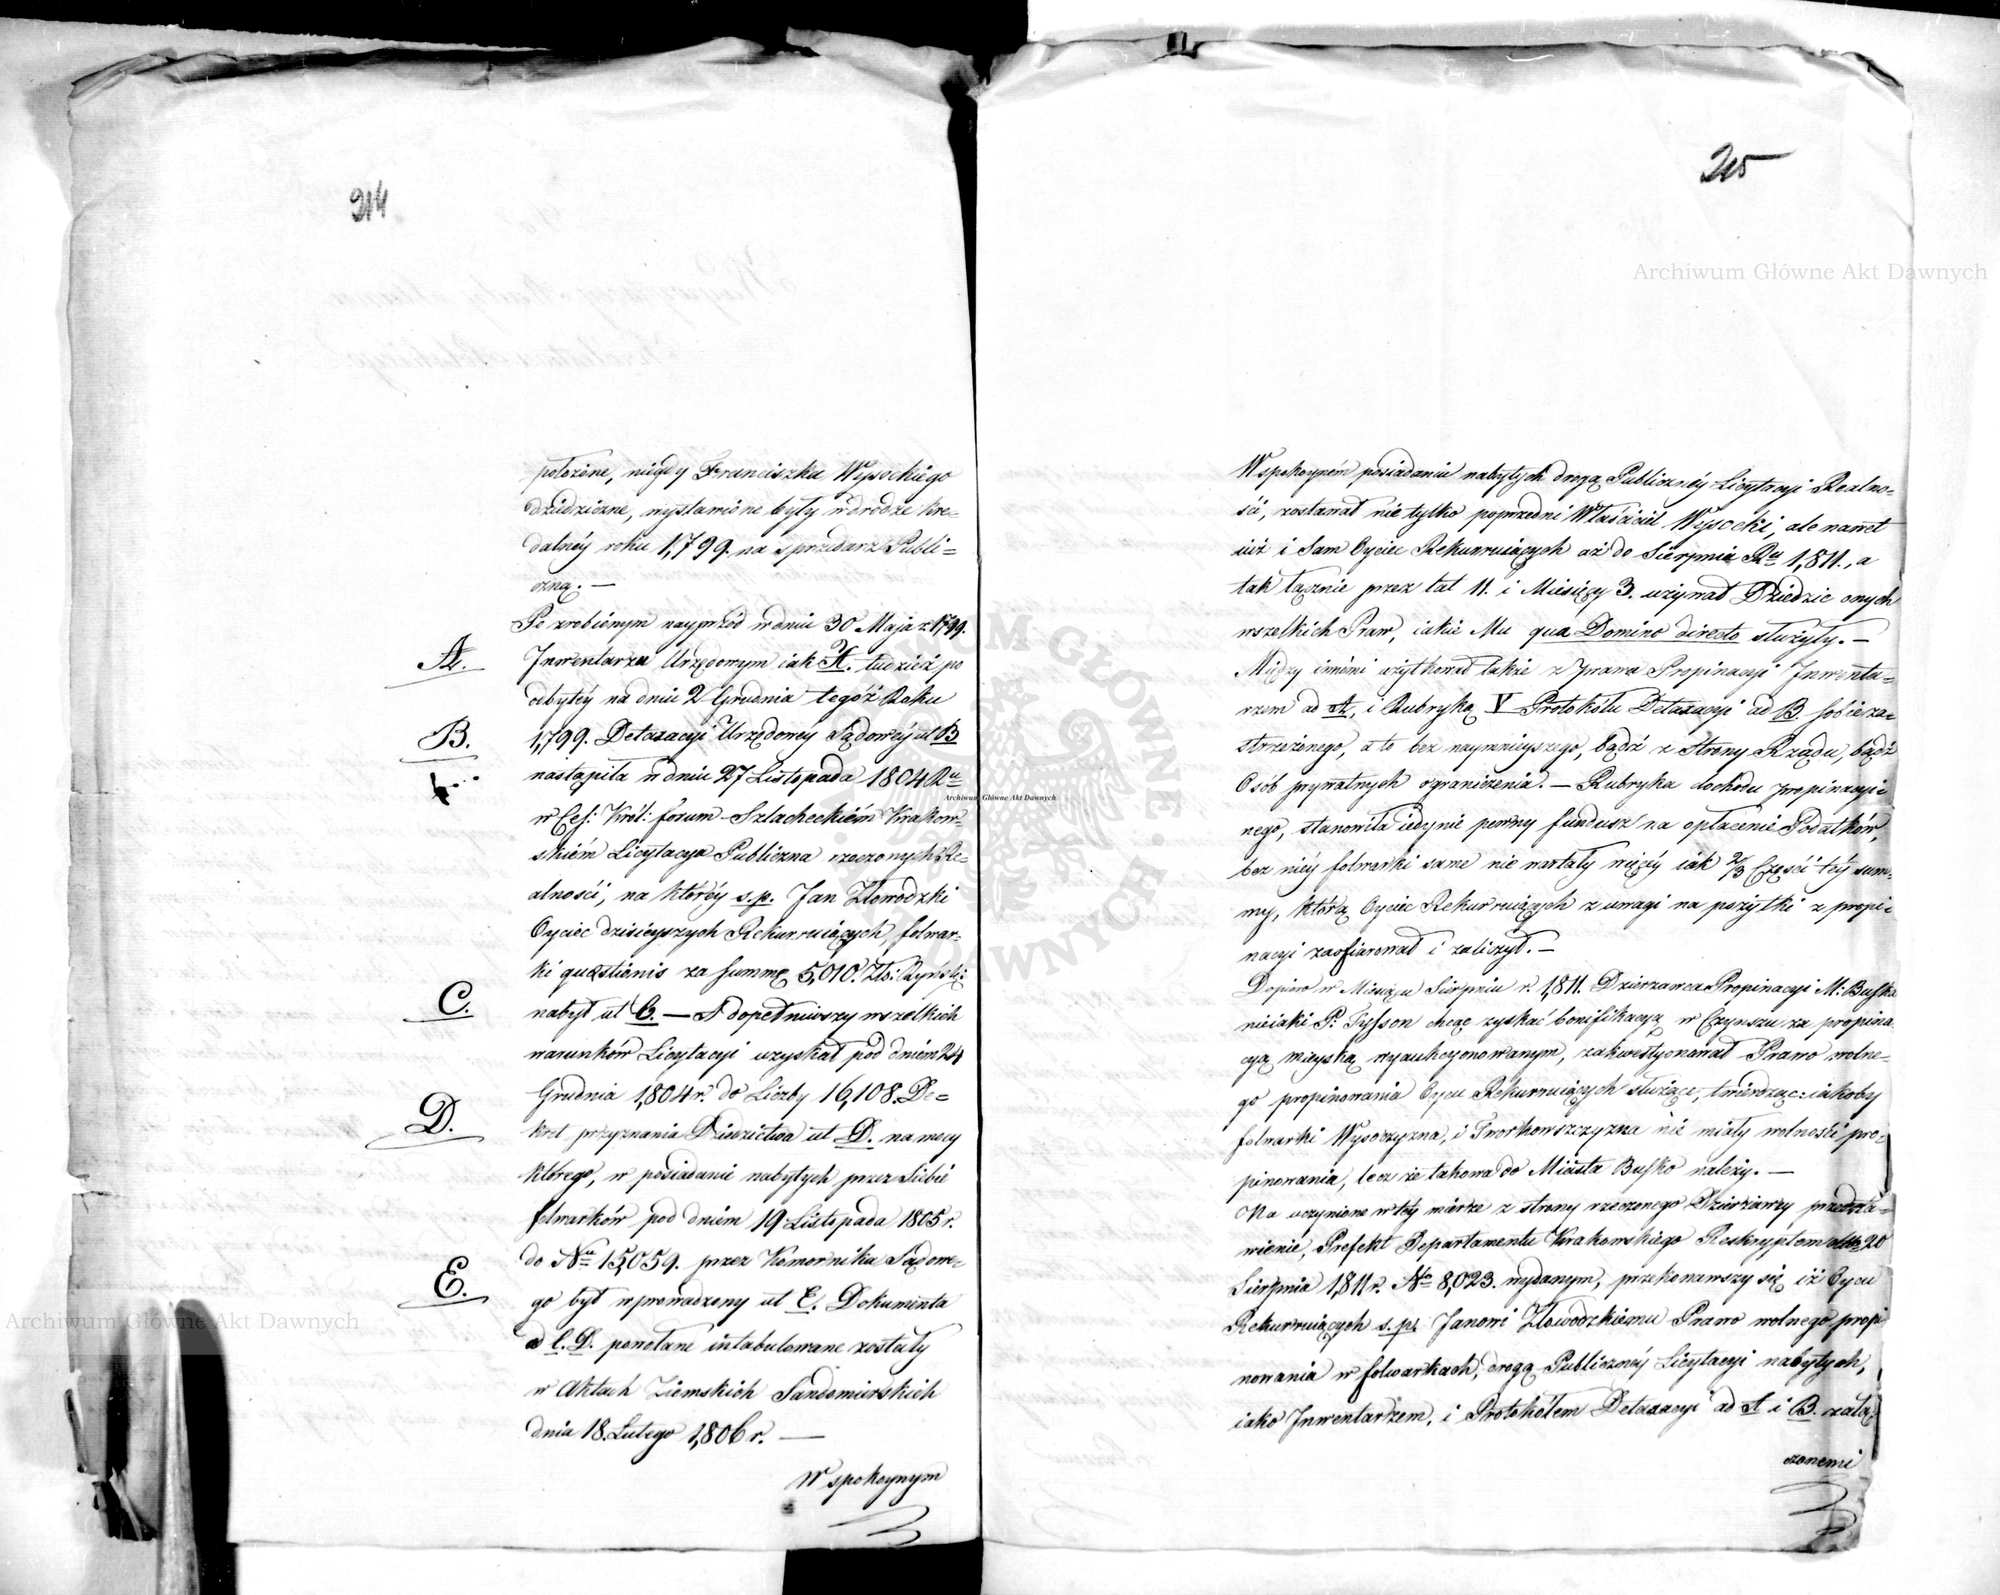 214
położone, niegdy Franciszka Wysockiego
dziedziczne, wystawione były w drodze kre-
dalnéy roku 1,799 na sprzedarz Publi-
czną. —
Po zrobionym nayprzód w dniu 30 Maja r. 1799.
A. Jnwentarza Urzędowym iak A. tudzież po
odbytéy na dniu 2 Grudnia tegóż Roku
B. 1,799. Detaxacyi Urzędowey Sądowéy ut B
nastąpiła w dniu 27 Listopada 1804 Ru
w Ces: Król: forum Szlacheckiém Krakow-
skiém Licytacya Publiczna rzeczonych Re-
alności, na któréy s.p. Jan Złowodzki
Oyciec dzisieyszych Rekurruiących, folwar-
ki quaestionis za summę 5,010. Zło: Ryńskię
C. nabył ut C. — A dopełniwszy wszelkich
warunków Licytacyi uzyskał pod dniem 24
Grudnia 1,804 r. do Liczby 16,108. De-
D. kret przyznania Dziedzictwa ut D. na mocy
którego, w posiadanie nabytych przez Siebie
folwarków pod dniém 19 Listopada 1805 r.
do Nru 15,059. przez Komornika Sądowe-
E. go był wprowadzony ut E. Dokumenta
ad C. D. powołane intabulowane zostały
w Aktach Ziemskich Sandomirskich
dnia 18. Lutego 1,806 r. —
W spokoynym
215
W spokoyném posiadaniu nabytych drogą Publicznéy Licytacyi Realno-
ści, zostawał nie tylko poprzedni Właściciel Wysocki, ale nawet
iuż i Sam Oyciec Rekurruiących aż do Sierpnia Ru 1,811., a
tak łącznie przez lat 11. i Miesięcy 3. używał Dziedzic onych
wszelkich Praw, iakie Mu qua Domino directo służyły. —
Między innémi użytkował także z Prawa Propinacyi Jnwenta-
rzem ad A, i Rubryką V Protokółu Detaxacyi ad B. sobie za-
strzeżonego, a to bez naymnieyszego, bądź z Strony Rządu, bądź
Osób prywatnych ograniczenia. — Rubryka dochodu propinacyi-
nego, stanowiła iedynie pewny fundusz na opłacenie Podatków,
bez niéy folwarki same nie wartały więcéy iak 2/3 Części téy sum-
my, którą Oyciec Rekurruiących z uwagi na pożytki z propi-
nacyi zaofiarował i zaliczył. —
Dopiero w Miesiącu Sierpniu r. 1,811. Dzierżawca Propinacyi M: Buska
nieiaki P. Tysson chcąc zyskać bonifikacyą w Czynszu za propina
cyą mieyską wyaukcyonowanym, zakwestyonował Prawo wolne-
go propinowania Oycu Rekurruiących służące, twierdząc: iakoby
folwarki Wysoczyzna, i Tworkowszczyzna nie miały wolności pro-
pinowania, lecz że takowa do Miasta Busko należy. —
Na uczynione w téy mierze z strony rzeczonego Dzierżawcy przedsta-
wienie, Prefekt Departamentu Krakowskiego Reskryptem 20
Sierpnia 1,811 r. No 8,023. wydanym, przekonawszy się iż Oycu
Rekurruiących s.p. Janowi Złowodzkiemu Prawo wolnego propi
nowania w folwarkach, drogą Publicznéy Licytacyi nabytych,
iako Jnwentarzem, i Protokółem Detaxacyi ad A i B. załą-
czonemi
Archiwum Główne Akt Dawnych
Archiwum Główne Akt Dawnych
Archiwum Główne Akt Dawnych